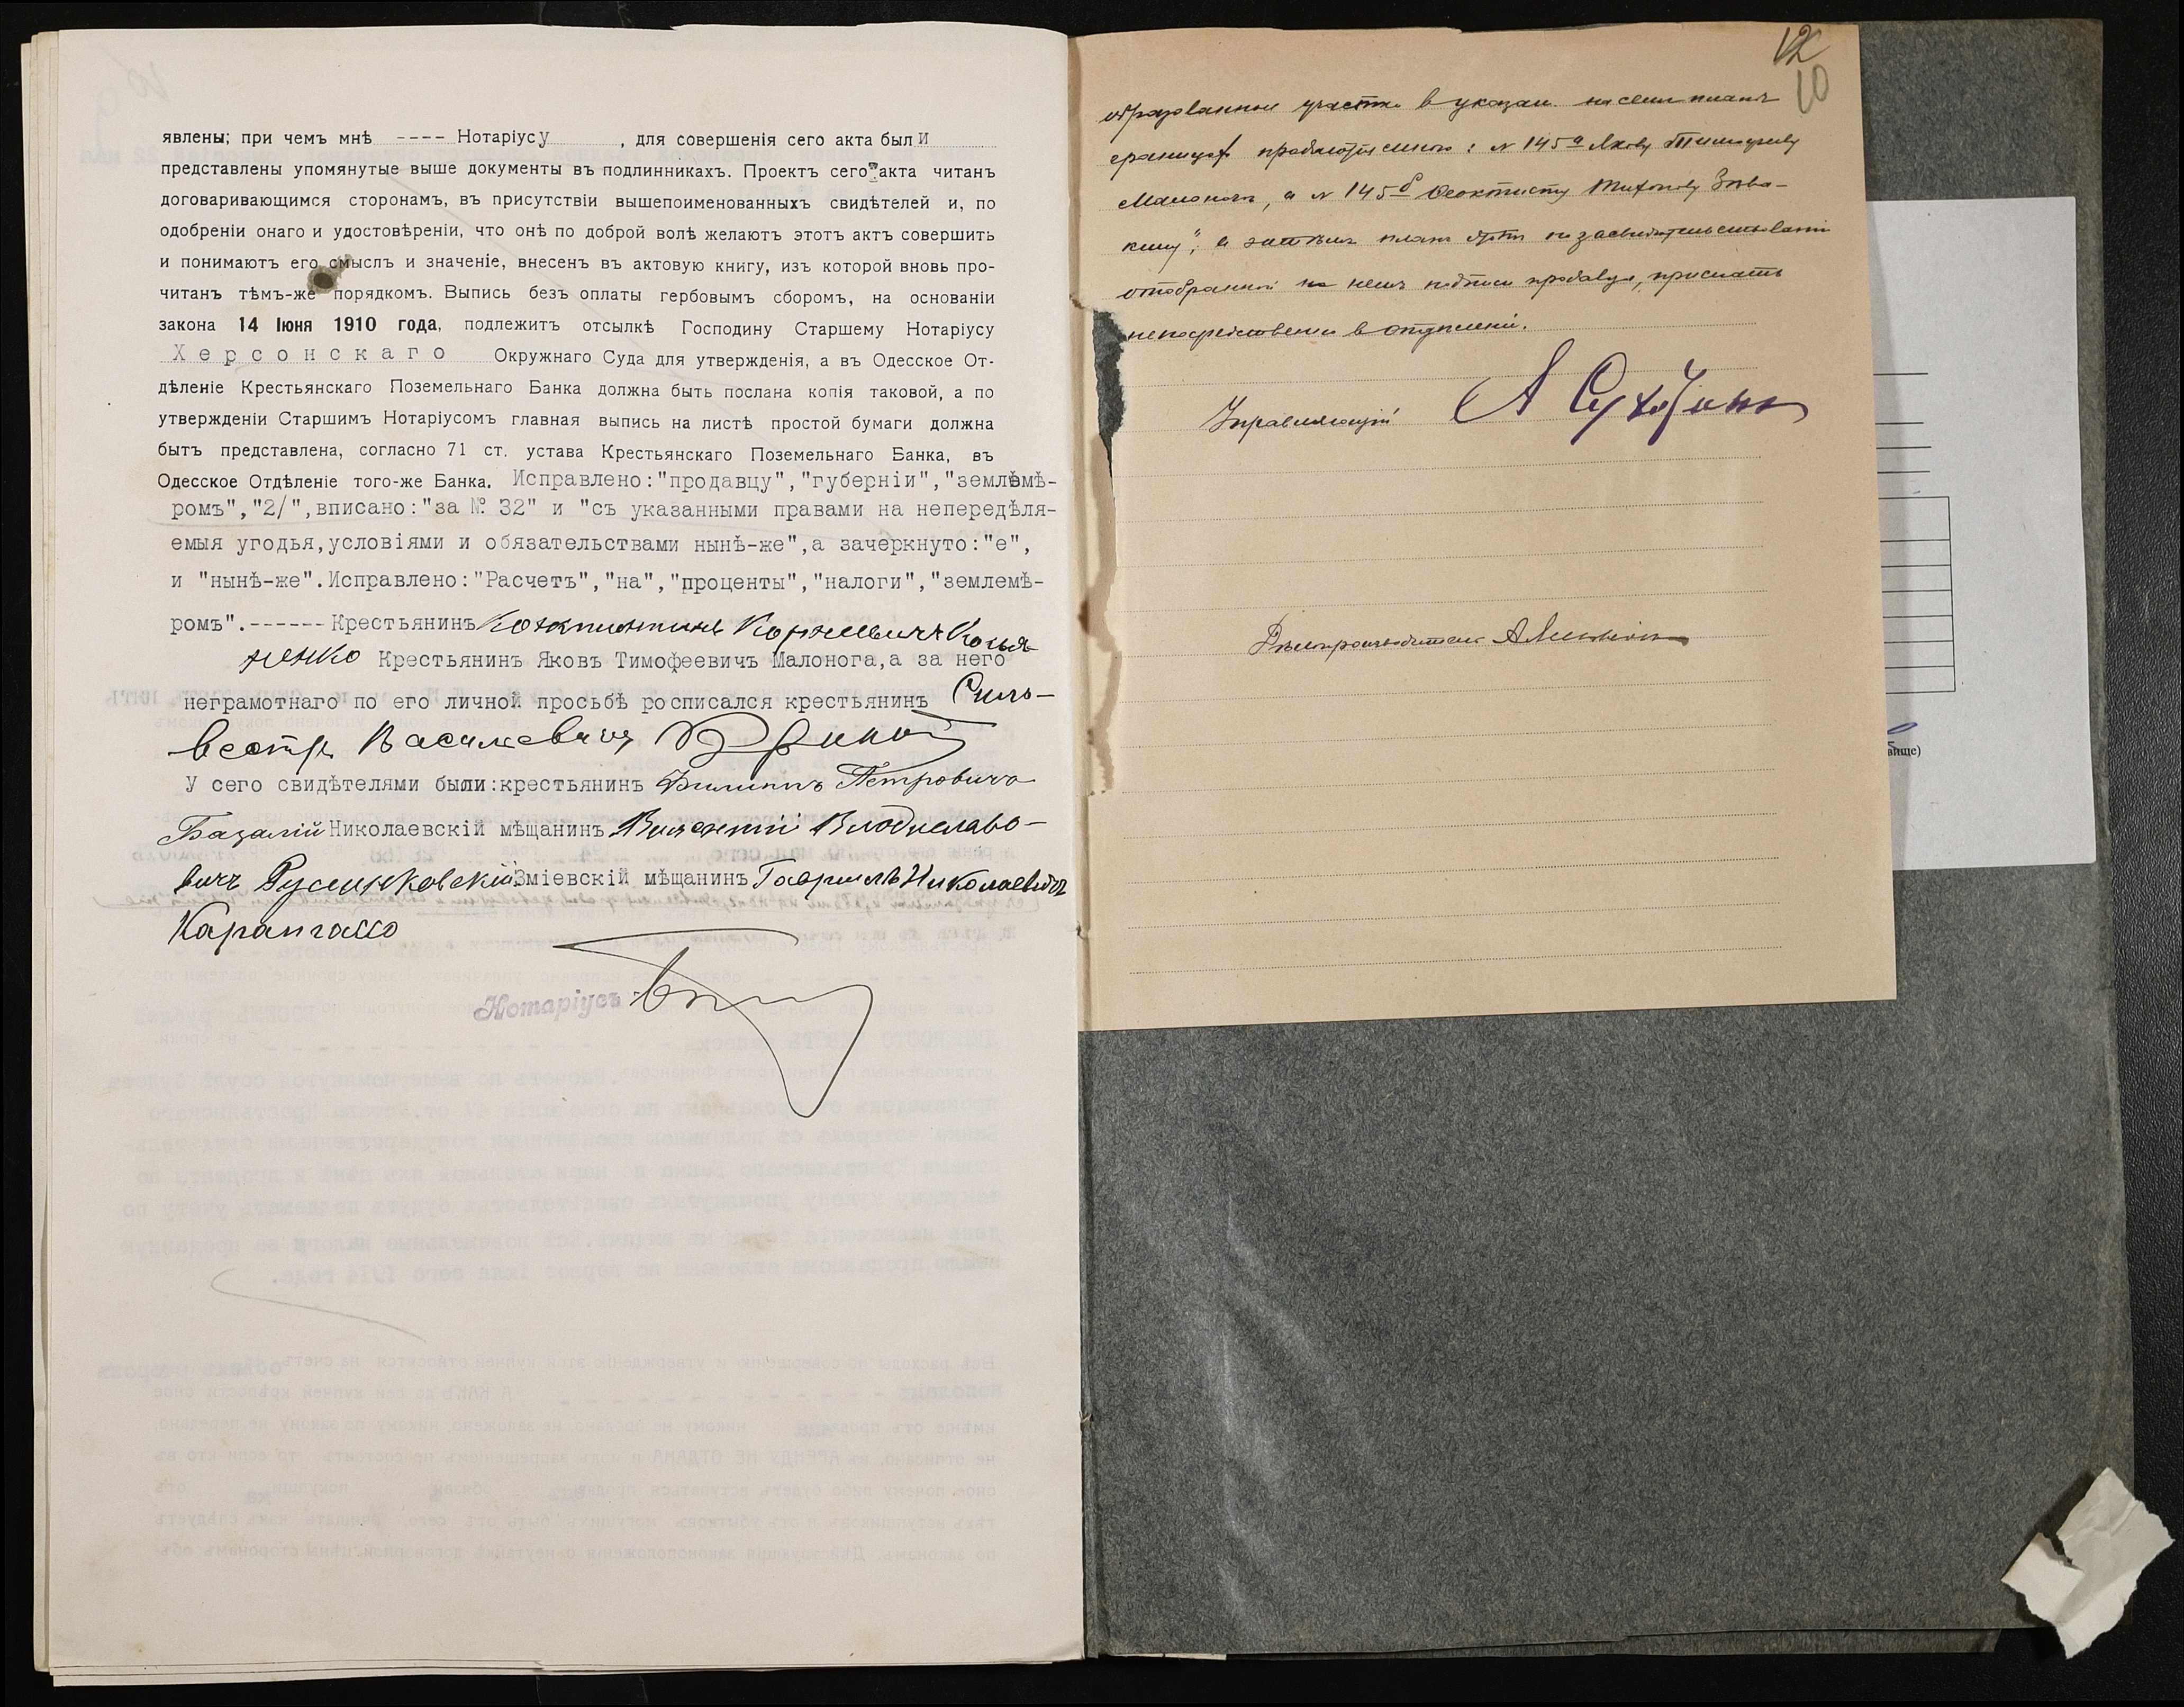 явлены; при чемъ мнѣ ---- Нотаріусу , для совершенія сего акта был и
представлены упомянутые выше документы въ подлинникахъ. Проектъ сего акта читанъ
договаривающимся сторонамъ, въ присутствіи вышепоименованныхъ свидѣтелей и, по
одобреніи онаго и удостовѣреніи, что онѣ по доброй волѣ желаютъ этотъ актъ совершить
и понимаютъ его смыслъ и значеніе, внесенъ въ актовую книгу, изъ которой вновь про-
читанъ тѣмъ-же порядкомъ. Выпись безъ оплаты гербовымъ сборомъ, на основаніи
закона 14 Іюня 1910 года, подлежитъ отсылкѣ Господину Старшему Нотаріусу
Херсонскаго Окружнаго Суда для утвержденія, а въ Одесское От-
дѣленіе Крестьянскаго Поземельнаго Банка должна быть послана копія таковой, а по
утвержденіи Старшимъ Нотаріусомъ главная выпись на листѣ простой бумаги должна
быть представлена, согласно 71 ст. устава Крестьянскаго Поземельнаго Банка, въ
Одесское Отдѣленіе того-же Банка. Исправлено:"продавцу","губерніи","землемѣ-
ромъ","2/",вписано:"за № 32" и "съ указанными правами на непередѣля-
емыя угодья,условіями и обязательствами нынѣ-же",а зачеркнуто:"е",
и "нынѣ-же".Исправлено:"Расчетъ","на","проценты","налоги","землемѣ-
ромъ".------Крестьянинъ
ненко Крестьянинъ Яковъ Тимофеевичъ Малонога,а за него
неграмотнаго по его личной просьбѣ росписался крестьянинъ Силь-
вестръ Васильевичъ
У сего свидѣтелями были:крестьянинъ Филиппъ Петровичъ
Базалій Николаевскій мѣщанинъ Викентій Владиславо-
вичъ Зміевскій мѣщанинъ Гавріилъ Николаевичъ
Нотаріусъ
12
10
образованные участки в указан. на семъ планѣ
границах продаются мною: № 145а Якову Тимофееву
Малоногѣ, а № 145б Феоктисту Тихонову
кину", а затѣмъ планъ по засвидѣтельствованіи
отобранной на немъ подписи продавца, прислать
непосредственно в отдѣленіе.
Управляющій
Дѣлопроизводитель